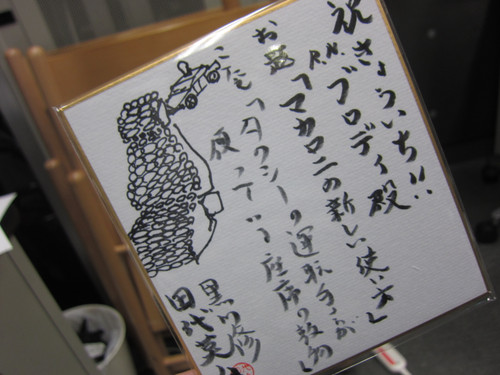 祝きょういち!!
R.N.ブロディ殿
お題「マカロニの新しい使い方」
こたえ「タクシーの運転手が
使っている座席の敷物」
黒川修
田代英